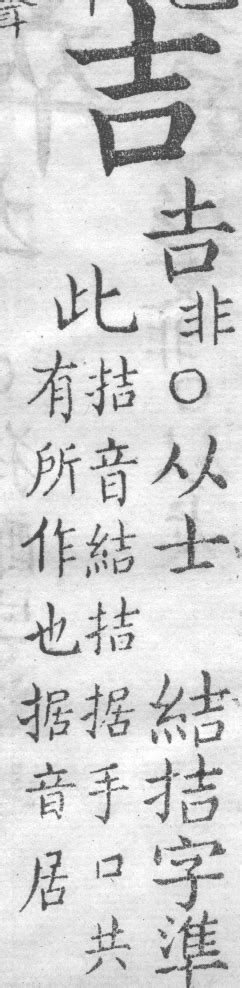 吉
𠮷非〇从士結拮字準
此
拮音結拮据手口共
有所作也据音居